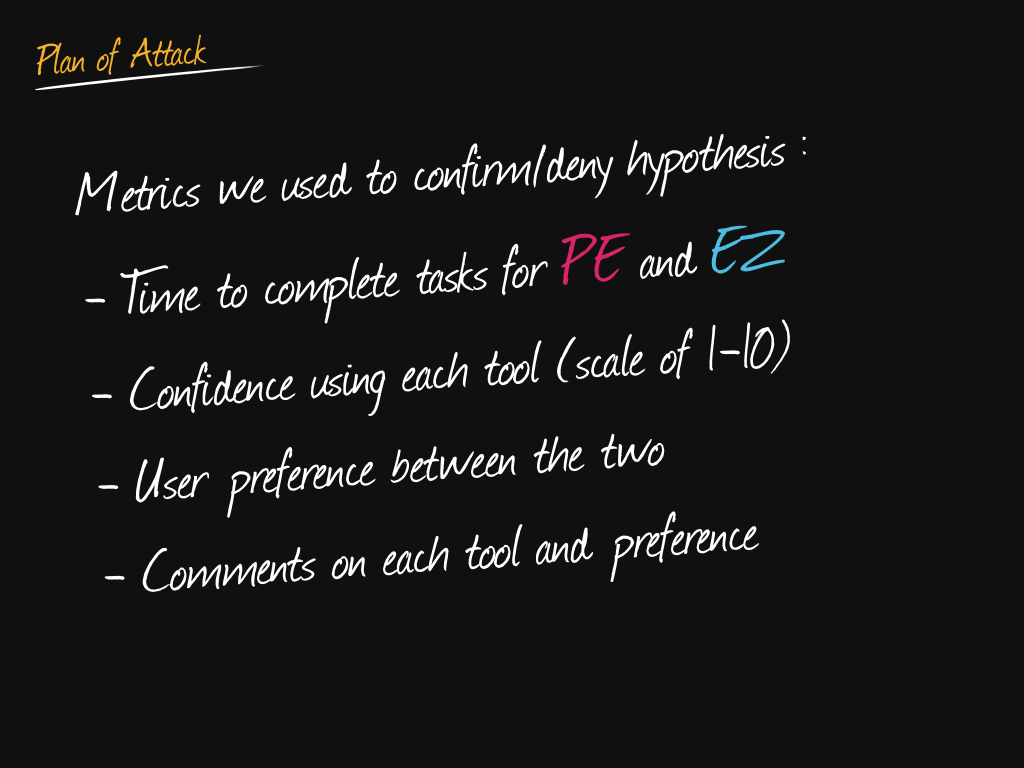 Plan of Attack
Metrics we used to confirm/deny hypothesis :
- Time to complete tasks for PE and EZ
- Confidence using each tool (scale of 1-10)
- User preference between the two
- Comments on each tool and preference